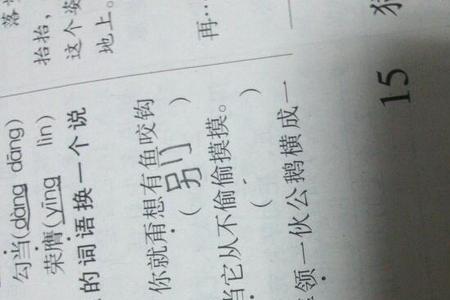 勾当(dàng dāng)
荣膺(yīng lin)
的词语换一个说
你就甭想有鱼咬钩
(别)
当它从不偷偷摸摸。
( )
领一伙公鹅横成一
落
抬抬,
这个姿
地上。
再…
15